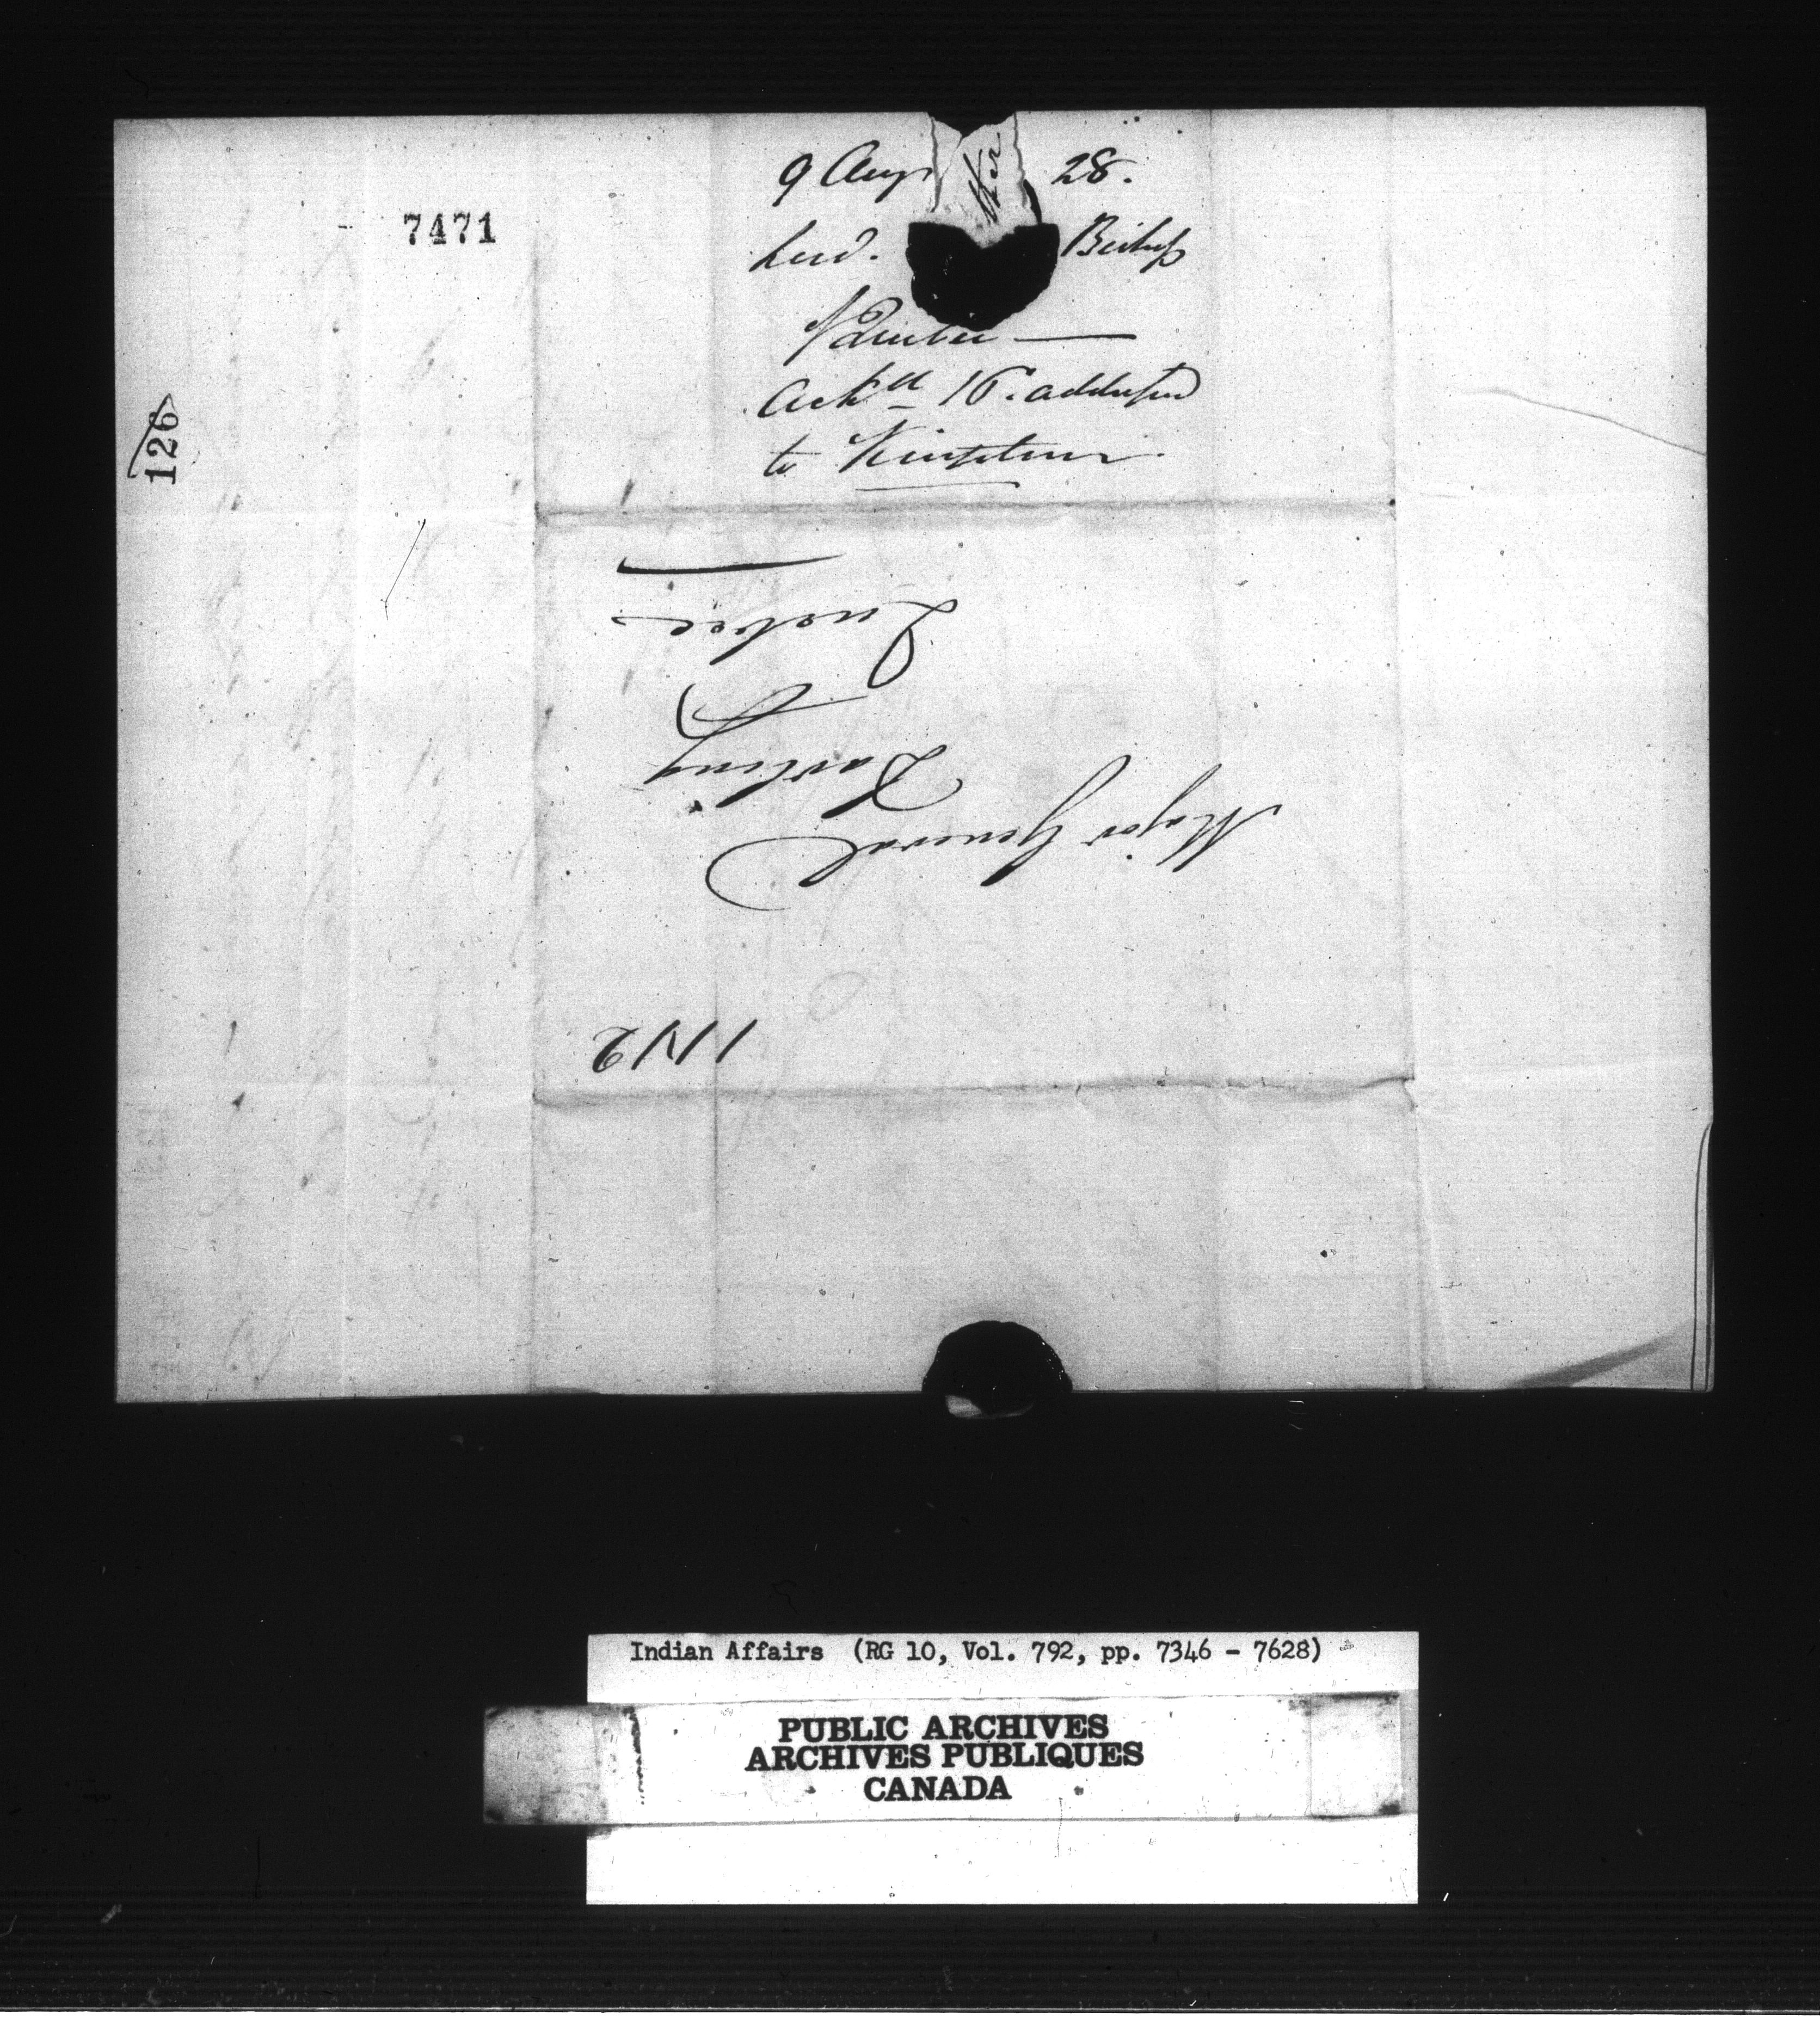 7471
126
9 Aug 28.
Lord. Bishop
of Quebec —
Ackd 16. addressed
to Kingston.
Major General
Darling
Quebec
Indian Affairs (RG 10, Vol. 792, pp. 7346 - 7628)
PUBLIC ARCHIVES
ARCHIVES PUBLIQUES
CANADA